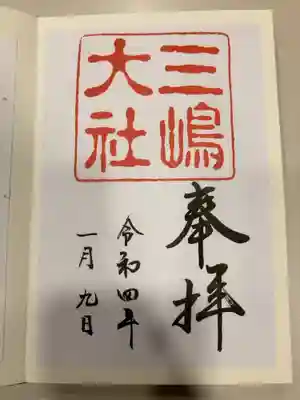 三嶋
大社
奉拝
令和四年
一月九日